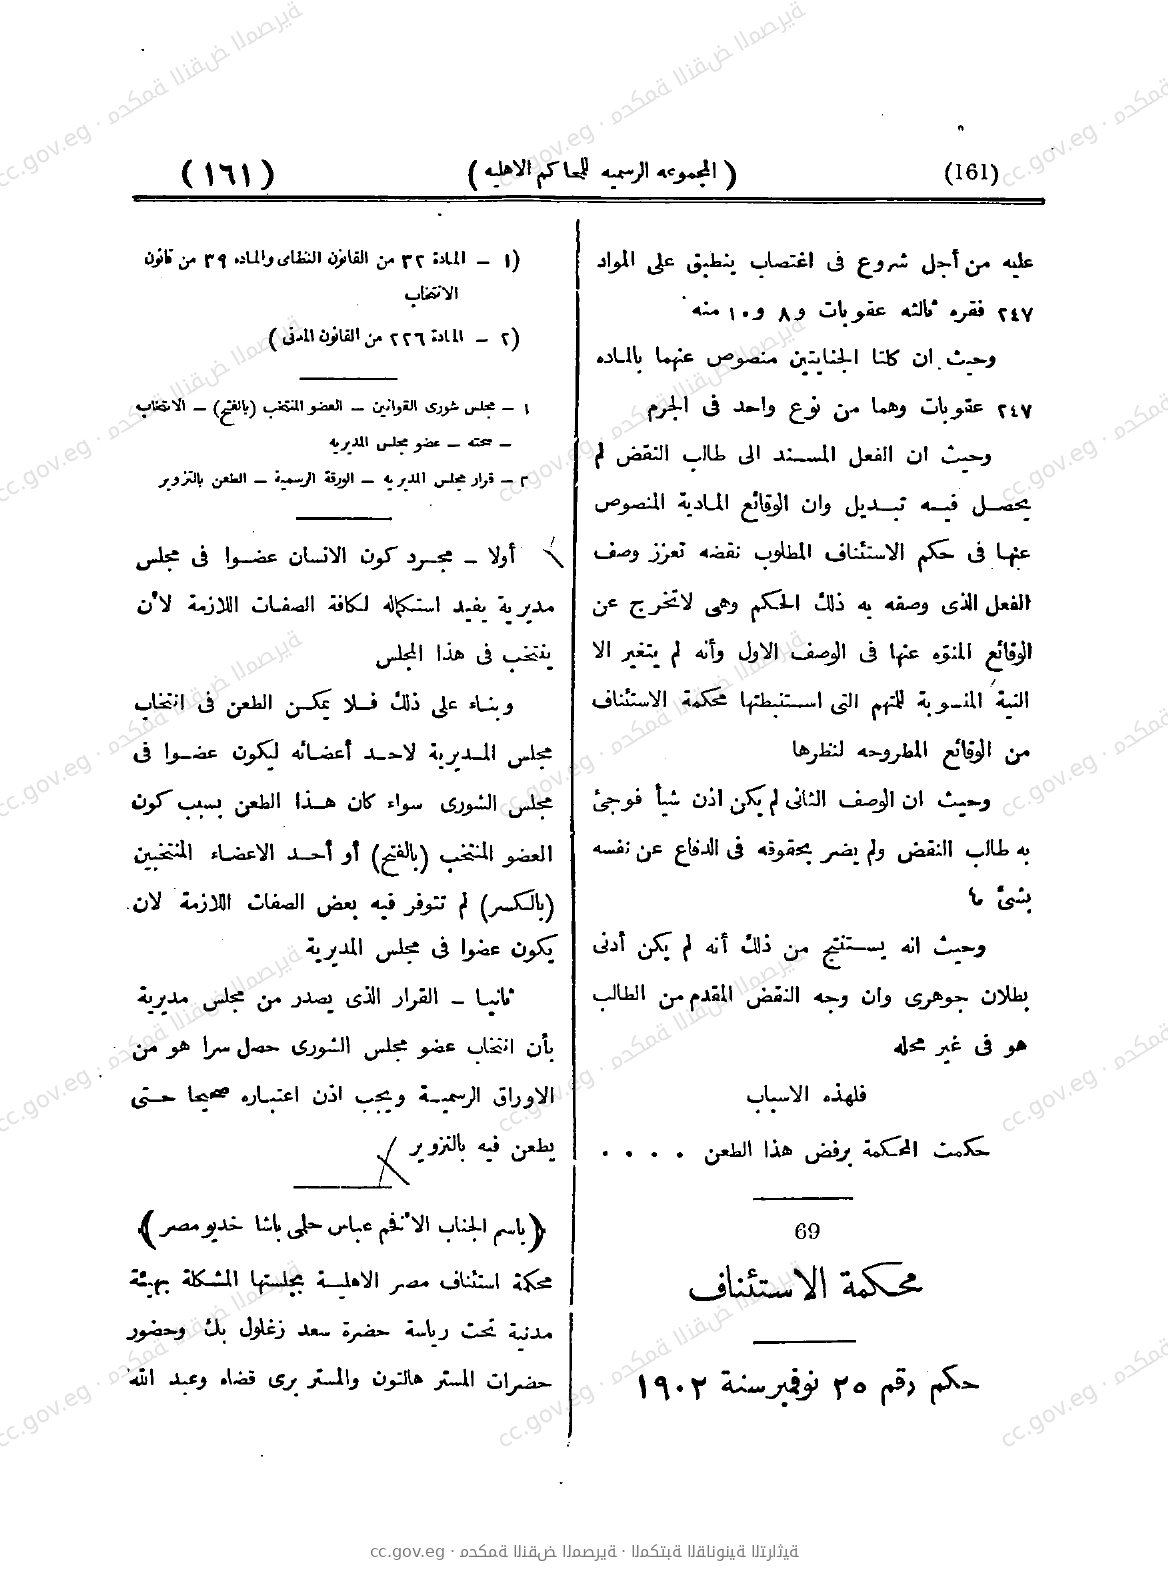 (161) ( المجموعه الرسميه للمحاكم الاهليه ) ( ١٦١ )
عليه من أجل شروع فى اغتصاب ينطبق على المواد
٢٤٧ فقره ثالثه عقوبات و ٨ و ١٠ منه
وحيث ان كلتا الجنايتين منصوص عنهما بالماده
٢٤٧ عقوبات وهما من نوع واحد فى الجرم
وحيث ان الفعل المسند الى طالب النقض لم
يحصل فيه تبديل وان الوقائع المادية المنصوص
عنها فى حكم الاستئناف المطلوب نقضه تعزز وصف
الفعل الذى وصفه به ذلك الحكم وهى لا تخرج عن
الوقائع المنوه عنها فى الوصف الاول وأنه لم يتغير الا
النية المنسوبة للمتهم التى استنبطتها محكمة الاستئناف
من الوقائع المطروحه لنظرها
وحيث ان الوصف الثانى لم يكن اذن شيأ فوجئ
به طالب النقض ولم يضر بحقوقه فى الدفاع عن نفسه
بشئ ما
وحيث انه يستنتج من ذلك أنه لم يكن أدنى
بطلان جوهرى وان وجه النقض المقدم من الطالب
هو فى غير محله
فلهذه الاسباب
حكمت المحكمة برفض هذا الطعن . . . .
69
محكمة الاستئناف
حكم رقم ٢٥ نوفمبر سنة ١٩٠٢
(١ - المادة ٣٢ من القانون النظامى والماده ٣٩ من قانون
الانتخاب
(٢ - المادة ٢٢٦ من القانون المدنى )
١ - مجلس شورى القوانين - العضو المنتخب (بالفتح) - الانتخاب
- صحته - عضو مجلس المديريه
٢ - قرار مجلس المديريه - الورقة الرسمية - الطعن بالتزوير
أولا - مجرد كون الانسان عضوا فى مجلس
مديرية يفيد استكماله لكافة الصفات اللازمة لأن
ينتخب فى هذا المجلس
وبناء على ذلك فلا يمكن الطعن فى انتخاب
مجلس المديرية لاحد أعضائه ليكون عضوا فى
مجلس الشورى سواء كان هذا الطعن بسبب كون
العضو المنتخب (بالفتح) أو أحد الاعضاء المنتخبين
(بالكسر) لم تتوفر فيه بعض الصفات اللازمة لان
يكون عضوا فى مجلس المديرية
ثانيا - القرار الذى يصدر من مجلس مديرية
بأن انتخاب عضو مجلس الشورى حصل سرا هو من
الاوراق الرسمية ويجب اذن اعتباره صحيحا حتى
يطعن فيه بالتزوير
(باسم الجناب الافخم عباس حلمى باشا خديو مصر)
محكمة استئناف مصر الاهلية بجلستها المشكلة بهيئة
مدنية تحت رياسة حضرة سعد زغلول بك وحضور
حضرات المستر هالتون والمستر برى قضاه وعبد الله
cc.gov.eg · محكمة النقض المصرية · المكتبة القانونية التراثية